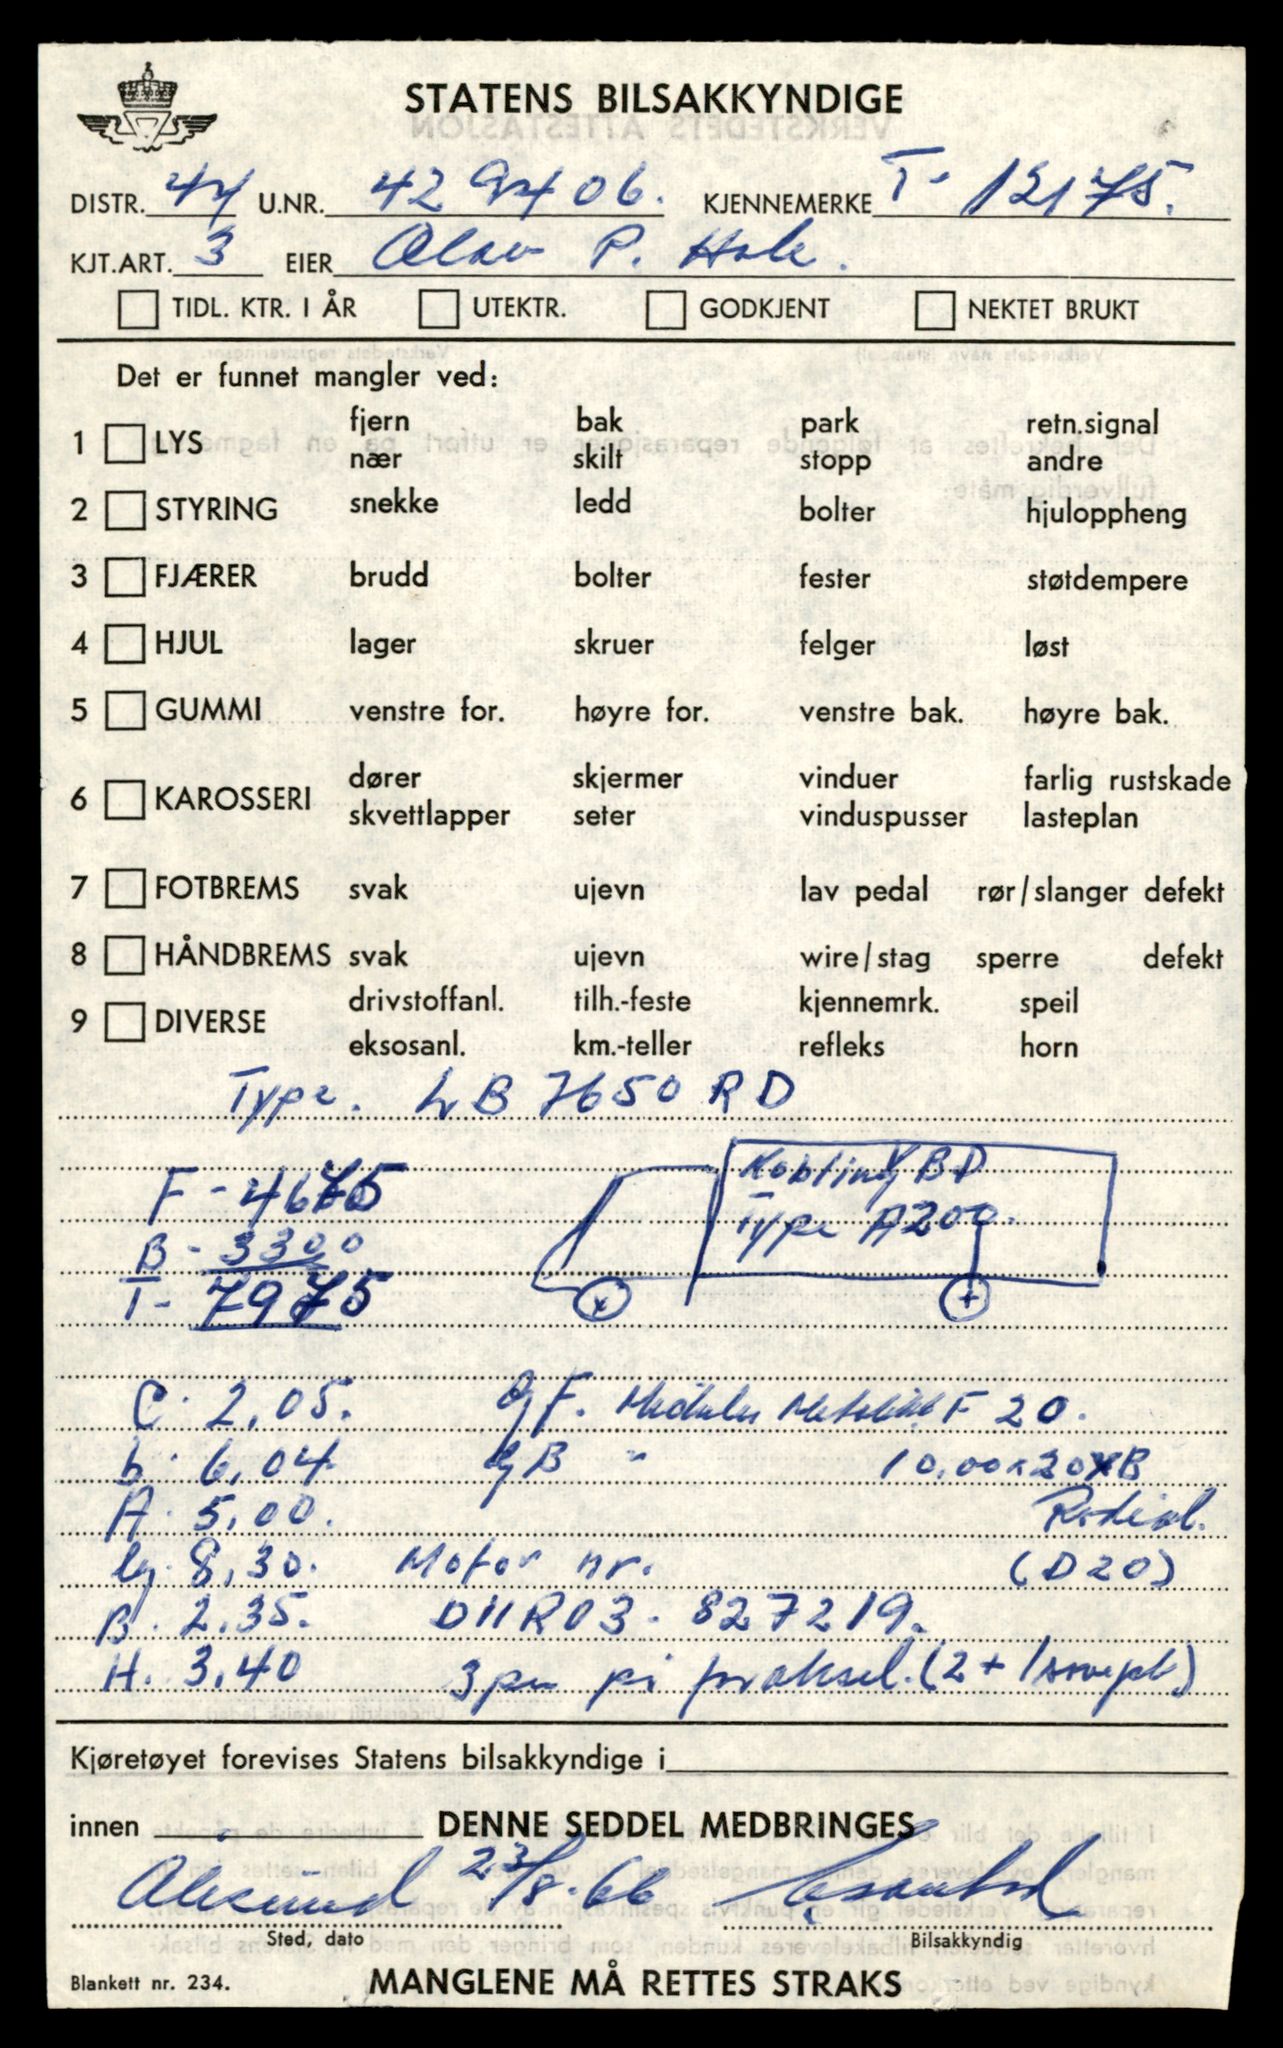 STATENS BILSAKKYNDIGE
DISTR. 44 U.NR. 429406. KJENNEMERKE T- 12175.
KJT.ART. 3 EIER Olav P. Hole.
TIDL. KTR. I ÅR UTEKTR. GODKJENT NEKTET BRUKT
Det er funnet mangler ved:
1 LYS fjern bak park retn.signal
nær skilt stopp andre
2 STYRING snekke ledd bolter hjuloppheng
3 FJÆRER brudd bolter fester støtdempere
4 HJUL lager skruer felger løst
5 GUMMI venstre for. høyre for. venstre bak. høyre bak.
6 KAROSSERI dører skjermer vinduer farlig rustskade
skvettlapper seter vinduspusser lasteplan
7 FOTBREMS svak ujevn lav pedal rør/slanger defekt
8 HÅNDBREMS svak ujevn wire/stag sperre defekt
9 DIVERSE drivstoffanl. tilh.-feste kjennemrk. speil
eksosanl. km.-teller refleks horn
Type. LB 7650 RD
F - 4675 Kobling VBD
B - 3300 Type A200.
T - 7975
C. 2,05. F 20.
b. 6,04 B " 10,00 x 20 XB
A. 5,00. Radial.
lg. 8,30. Motor nr. (D20)
B. 2,35. D11R03 - 827219.
H. 3,40 3 på
Kjøretøyet forevises Statens bilsakkyndige i
innen DENNE SEDDEL MEDBRINGES
Ålesund 23/8-66
Sted, dato Bilsakkyndig
Blankett nr. 234. MANGLENE MÅ RETTES STRAKS